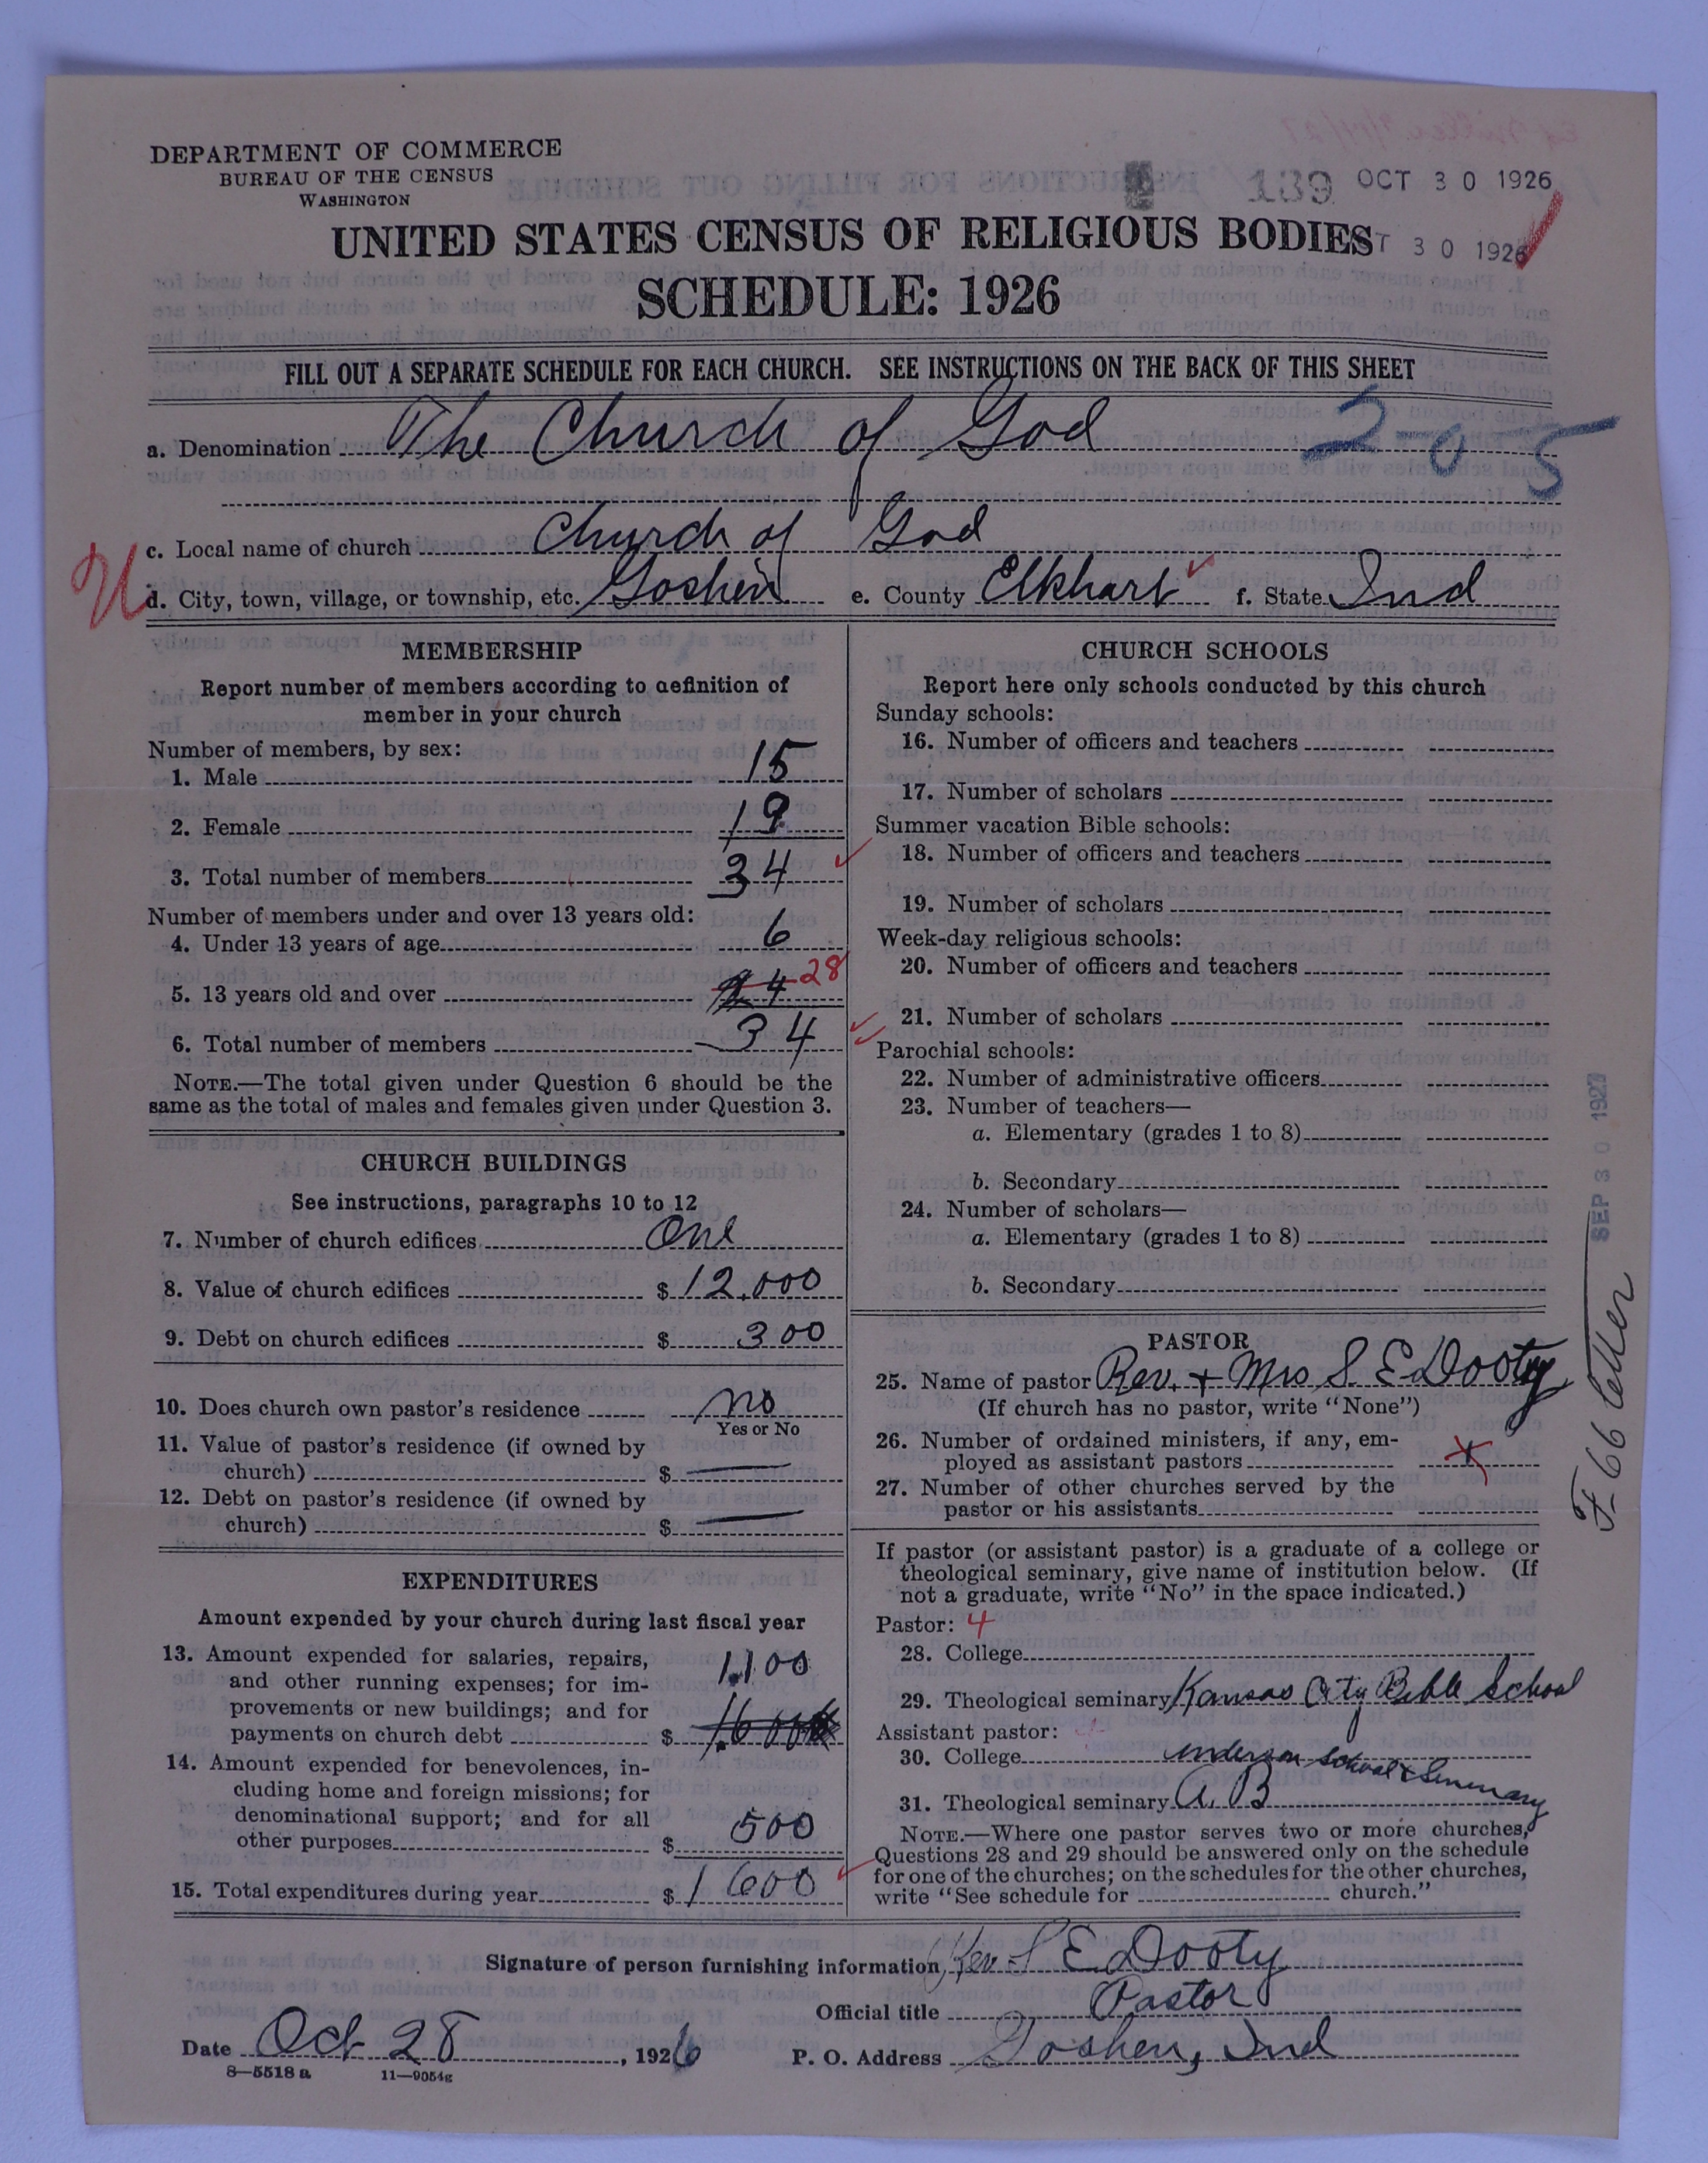 DEPARTMENT OF COMMERCE
BUREAU OF THE CENSUS
WASHINGTON
139 OCT 30 1926
UNITED STATES CENSUS OF RELIGIOUS BODIES
T 30 1926
SCHEDULE: 1926
FILL OUT A SEPARATE SCHEDULE FOR EACH CHURCH. SEE INSTRUCTIONS ON THE BACK OF THIS SHEET
a. Denomination The Church of God 2-0-5
c. Local name of church Church of God
U
d. City, town, village, or township, etc. Goshen e. County Elkhart f. State Ind
MEMBERSHIP
Report number of members according to definition of
member in your church
Number of members, by sex:
1. Male 15
2. Female 19
3. Total number of members 34
Number of members under and over 13 years old:
4. Under 13 years of age 6
5. 13 years old and over 24 28
6. Total number of members 34
NOTE.—The total given under Question 6 should be the
same as the total of males and females given under Question 3.
CHURCH BUILDINGS
See instructions, paragraphs 10 to 12
7. Number of church edifices One
8. Value of church edifices $ 12,000
9. Debt on church edifices $ 300
10. Does church own pastor's residence no
Yes or No
11. Value of pastor's residence (if owned by
church) $ —
12. Debt on pastor's residence (if owned by
church) $ —
EXPENDITURES
Amount expended by your church during last fiscal year
13. Amount expended for salaries, repairs,
and other running expenses; for im-
provements or new buildings; and for
payments on church debt $ 1,100
14. Amount expended for benevolences, in-
cluding home and foreign missions; for
denominational support; and for all
other purposes $ 500
15. Total expenditures during year $ 1600
CHURCH SCHOOLS
Report here only schools conducted by this church
Sunday schools:
16. Number of officers and teachers
17. Number of scholars
Summer vacation Bible schools:
18. Number of officers and teachers
19. Number of scholars
Week-day religious schools:
20. Number of officers and teachers
21. Number of scholars
Parochial schools:
22. Number of administrative officers
23. Number of teachers—
a. Elementary (grades 1 to 8)
b. Secondary
24. Number of scholars—
a. Elementary (grades 1 to 8)
b. Secondary
PASTOR
25. Name of pastor Rev. + Mrs S E Dooty
(If church has no pastor, write "None")
26. Number of ordained ministers, if any, em-
ployed as assistant pastors
27. Number of other churches served by the
pastor or his assistants
If pastor (or assistant pastor) is a graduate of a college or
theological seminary, give name of institution below. (If
not a graduate, write "No" in the space indicated.)
Pastor: 4
28. College
29. Theological seminary Kansas City Bible School
Assistant pastor:
30. College Anderson School & Seminary
31. Theological seminary A. B
NOTE.—Where one pastor serves two or more churches,
Questions 28 and 29 should be answered only on the schedule
for one of the churches; on the schedules for the other churches,
write "See schedule for church."
SEP 30 1927
F-66 letter
Signature of person furnishing information Rev S E Dooty
Official title Pastor
Date Oct 28, 1926 P. O. Address Goshen, Ind
8—5518 a 11—9054g